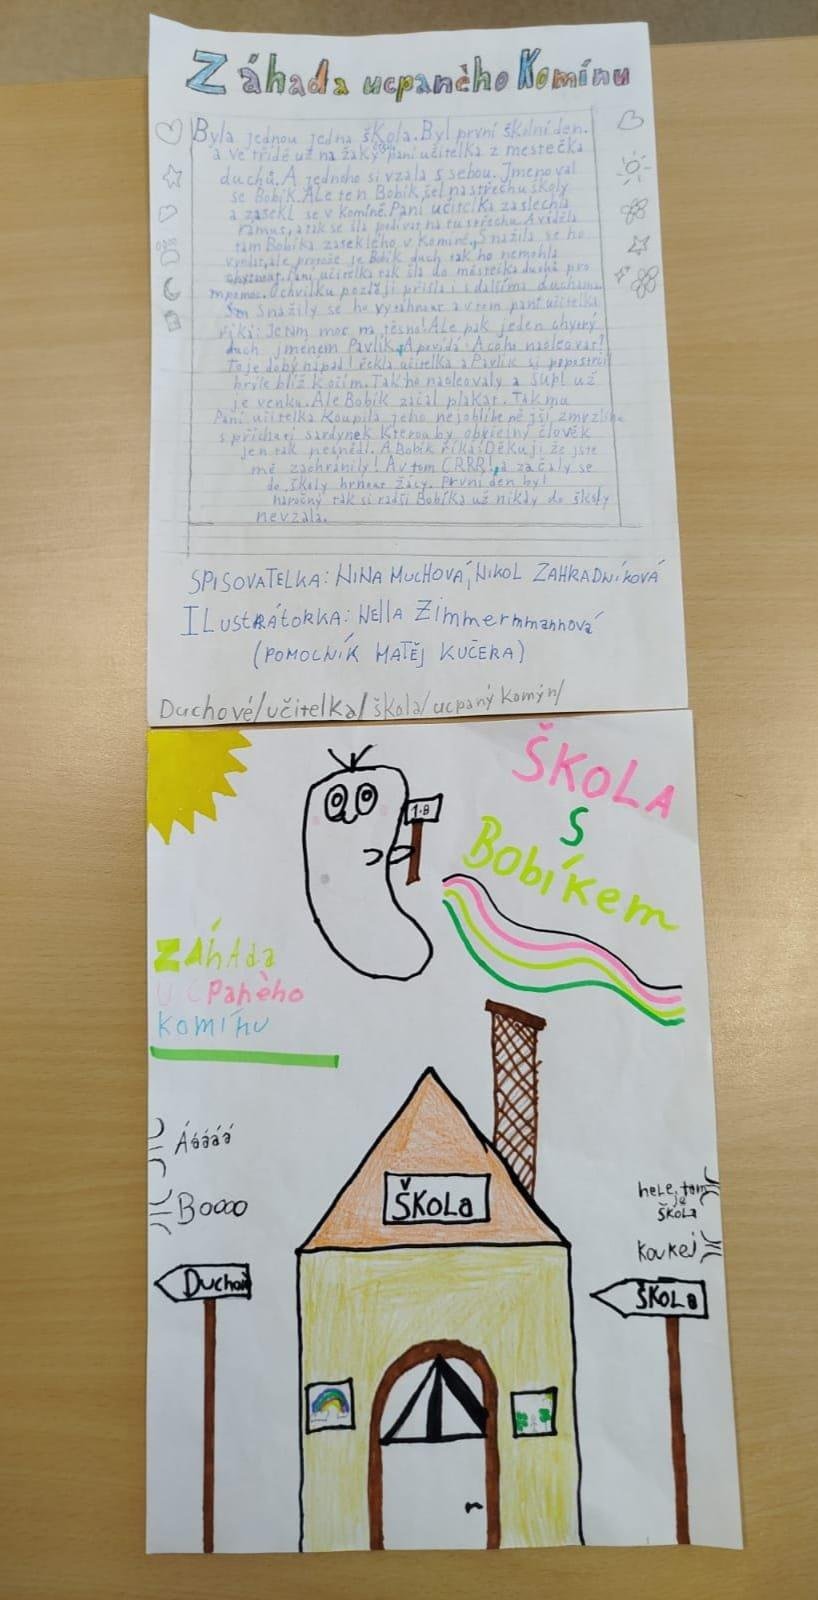 Záhada ucpaného Komínu
Byla jednou jedna škola. Byl první školní den.
a ve třídě už na žáky paní učitelka z mestečka
duchů. A jednoho si vzala s sebou. Jmenoval
se Bobík. ALe ten Bobík šel na střechu školy
a zasekl se v Komíně. Paní učitelka zaslechla
rámus, a tak se šla podívat na tu střechu. A viděla
tam Bobíka zaseklého v Komíně. Snažila se ho
vyndat, ale protože je Bobík duch tak ho nemohla
chytnout. Paní učitelka tak šla do městečka duchů pro
pomoc. Ochvilku později přišla i s dalšíma duchama.
Snažily se ho vytáhnout a v tom paní učitelka
říká: Je tam moc na těsno! ALe pak jeden chytrý
duch jménem Pavlík, A povídá: A coho naolejovat!
To je dobý nápad! řekla učitelka a Pavlík si popostrčil
brýle blíž k očím. Tak ho naolejovaly a šup! už
je venku. Ale Bobík začal plakat. Tak mu
Paní učitelka koupila jeho nejoblíbenější zmrzlinu
s příchutí sardynek Kterou by obyčejný člověk
jen tak nesnědl. A Bobík říká: Děkuji že jste
mě zachránily! A v tom CRRR!, a začaly se
do školy hrnout žácy. První den byl
náročný tak si radši Bobíka už nikdy do školy
nevzala.
SPISOVATELKA: NINA MUCHOVÁ, NIKOL ZAHRADNÍKOVÁ
ILUSTRÁTORKA: NELLA Zimmermmannová
(POMOCNÍK MATĚJ KUČERA)
Duchové/učitelka/škola/ucpaný komýn/
ŠKOLA
S
Bobíkem
1.B
ZÁHAda
UCPaného
Komínu
Áááááá
Boooo
hele, tam
je
ŠKOLA
Koukej
ŠKOLA
Duchové
ŠKOLA